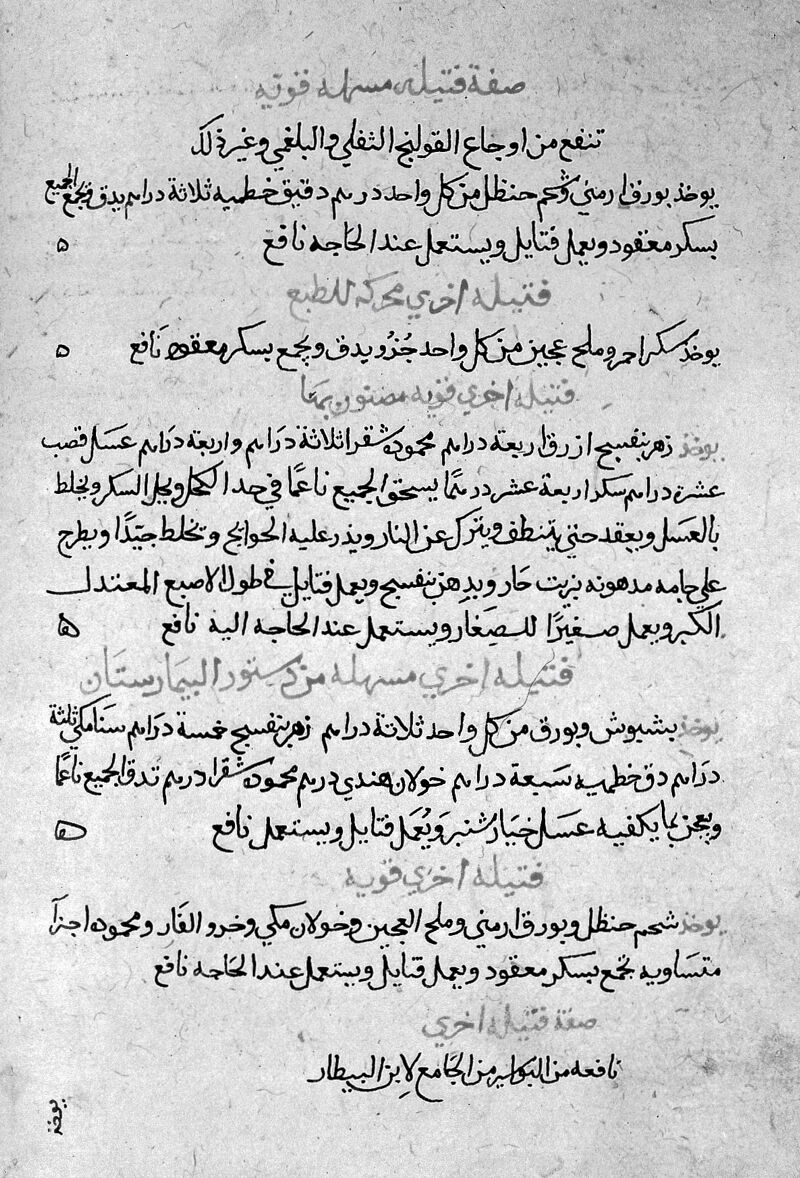 صفة فتيله مسهله قويه
تنفع من اوجاع القولنج الثفلي والبلغمي وغير ذلك
يوخذ بورق ارمني وشحم حنظل من كل واحد درهم دقيق خطميه ثلاثة دراهم يدق ويجمع الجميع
بسكر معقود ويعمل فتايل ويستعمل عند الحاجه نافع ه
فتيله اخري محركه للطبع
يوخذ سكر احمر وملح عجين من كل واحد جُزؤ ويدق ويجمع بسكر معقود نَافع ه
فتيله اخري قويه
يوخذ زهر بنفسج ازرق اربعة دراهم محموده شقرا ثلاثة دَراهم واربعة دَراهم عسَل قصب
عشرة دراهم سكر اربعة عشر درهمًا يسحق الجميع ناعمًا في حد الكحل ويحل السكر ويخلط
بالعسَل ويعقد حتي ويترك عن النار ويذر عليه الحوايج وتخلط جيّدًا ويطرح
علي جامه مدهونه بزيت حَار وبدهن بنفسبج ويعمل فتايل في طول الاصبع المعتدل
الكبر ويعمل صغيرًا للصِغَار ويستعمل عند الحاجه اليه نافع ه
فتيله اخري مسهله من دستور البيمَارستَان
يوخذ بشبوش وبورق من كل واحد ثلاثة دراهم زهر بنفسبج خمسة دَرَاهم سَنَا مكي ثلثة
دَرَاهم دق خطميه سَبعة دراهم خولان هندي درهم محموده شقرا درهم تدق الجميع ناعمًا
ويعجن بما يكفيه عسَل خيَار شنبر وَيُعمَل فتايل ويستعمل نافع ه
فتيله اخري قويه
يوخذ شحم حنظل وبورق ارمني وملح العجين وخولان مكي وخرو الفَار ومحموده اجزآ
متسَاويه تجمع بسكر معقود ويعمل فتايل ويستعمل عند الحَاجه نافع
صفة فتيله اخري
نافعه من البواسير من الجَامع لابن البيطار
يوخذ